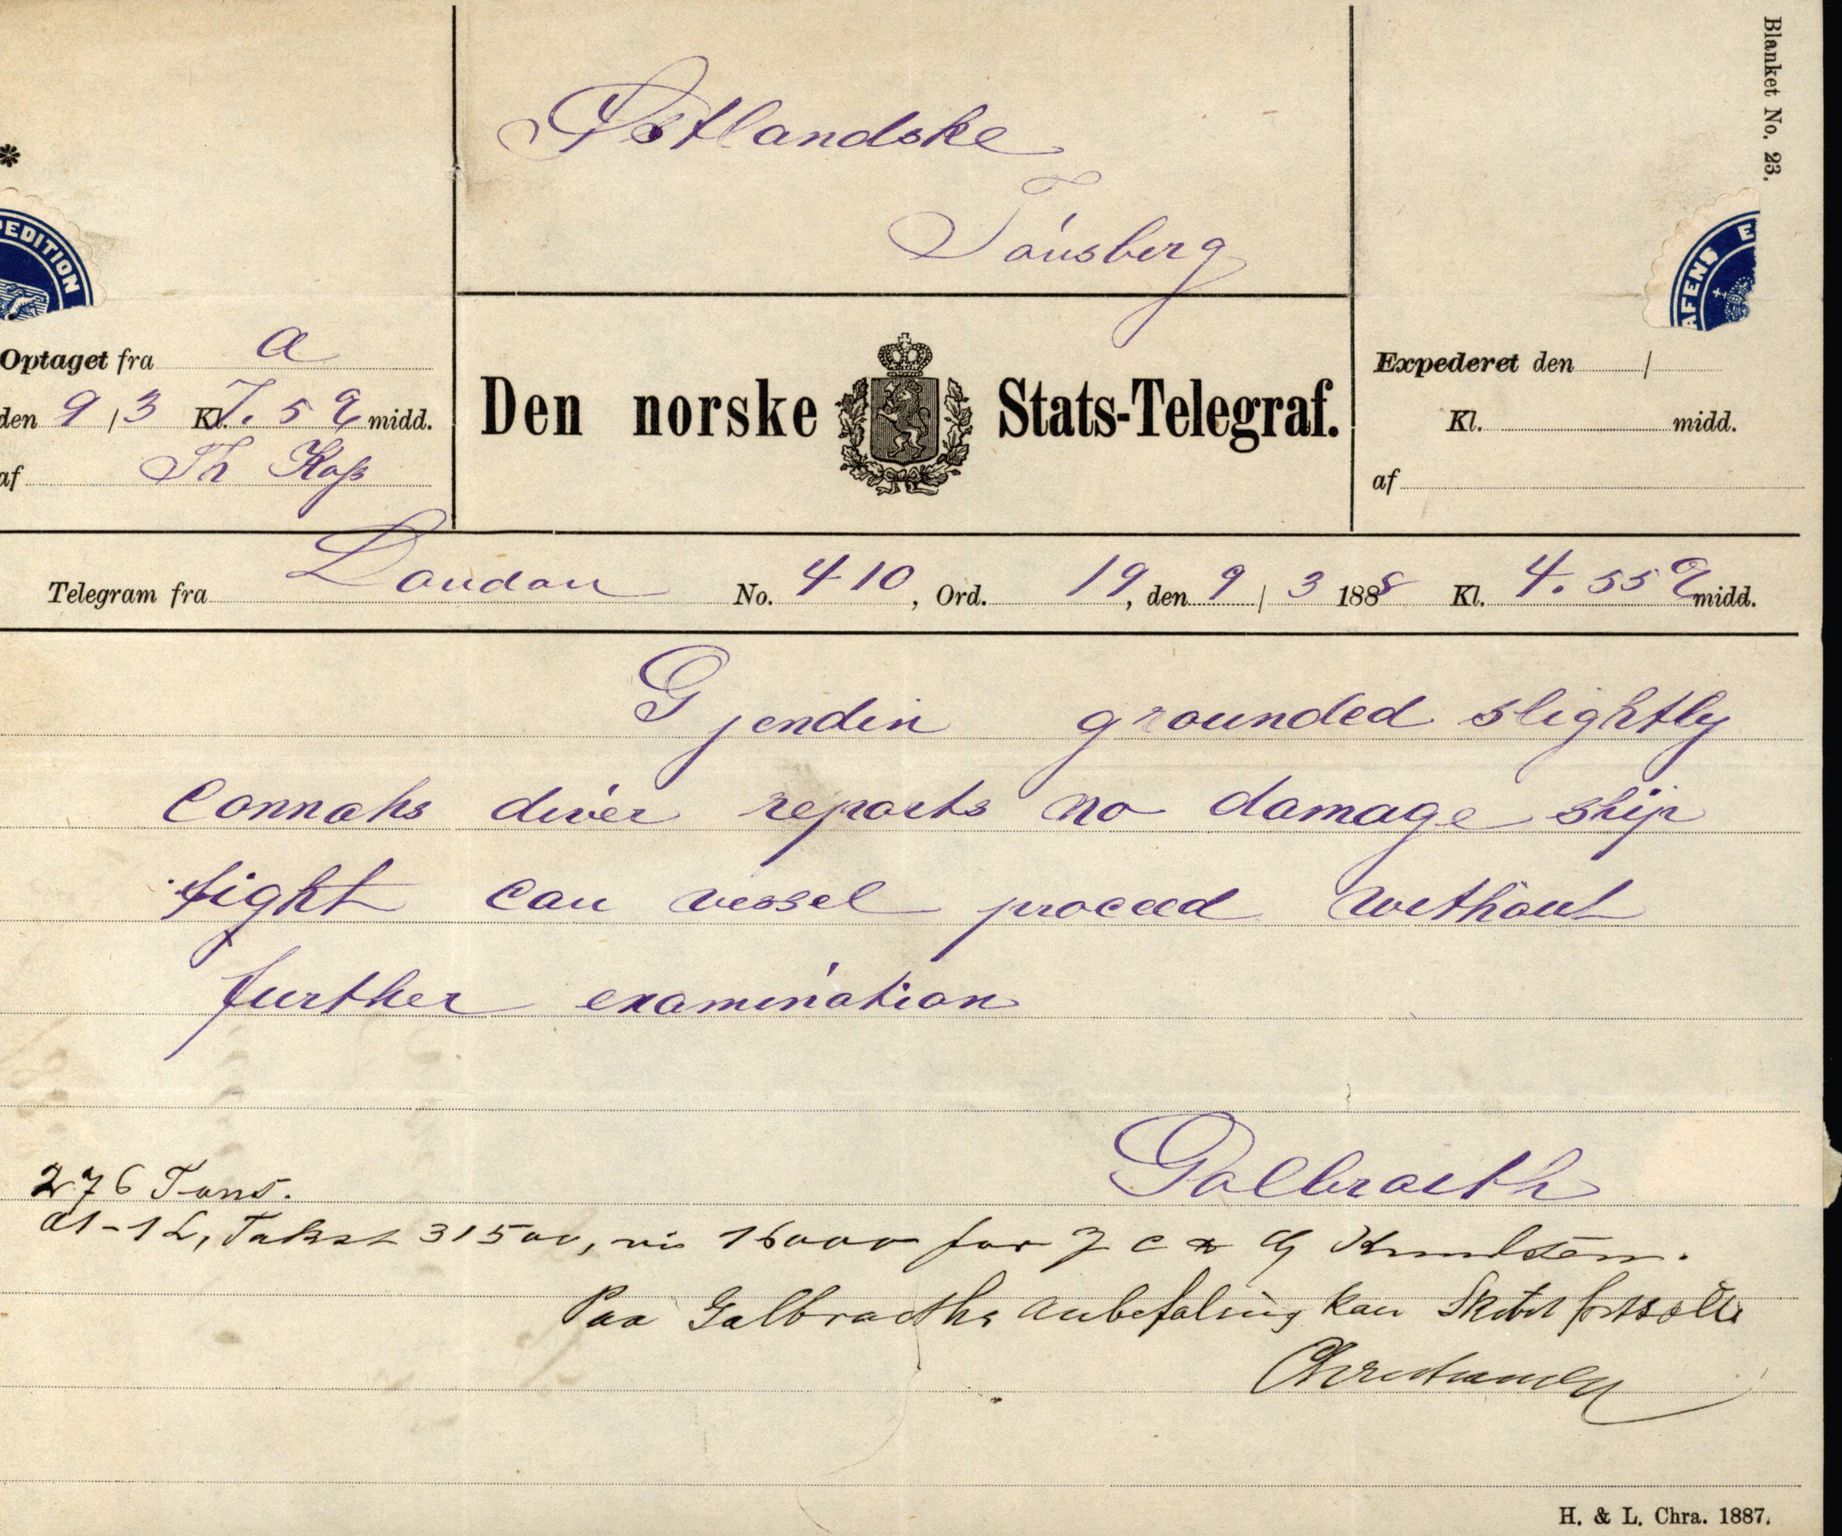 Blanket No. 23.
*
Østlandske
Tønsberg
PEDITION
AFENS E
Optaget fra a
den 9/3 Kl. 7.5 E midd.
af Th Koss
Den norske Stats-Telegraf.
Expederet den /
Kl. midd.
af
Telegram fra London No. 410, Ord. 19, den 9/3 1888 Kl. 4.55 E midd.
Gjendin grounded slightly
Connahs diver reports no damage ship
tight can vessel proceed without
further examination
Galbraith
276 Tons.
A1-1 L, Takst 31500, vi 16000 for J C & G Knudsen.
Paa Galbraiths Anbefaling kan Skibet fortsætte
H. & L. Chra. 1887.